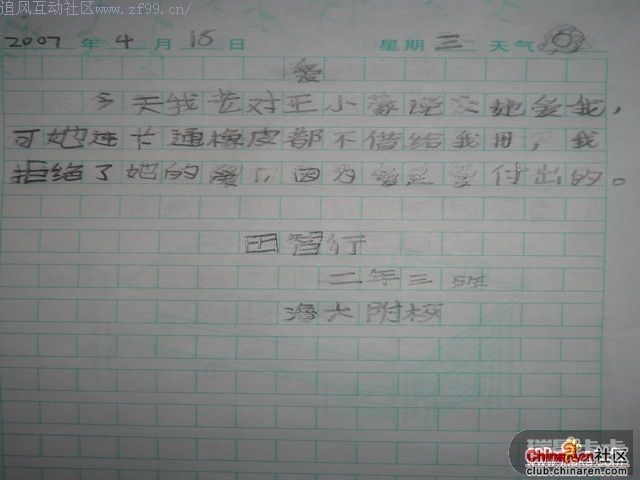 追风互动社区 www.zf99.cn/
2007 年 4 月 18 日 星期 三 天气
爱
今天我对王小蒙说她爱我,
可她连卡通橡皮都不借给我用,我
拒绝了她的爱,因为爱是要付出的。
田智行
二年三班
海大附校
ChinaRen社区
club.chinaren.com